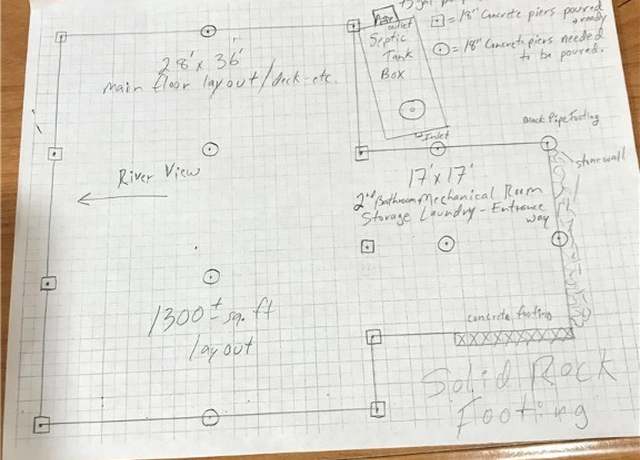 = 18" Concrete piers poured
+ ready
= 18" Concrete piers needed
to be poured.
outlet
Septic
Tank
Box
Inlet
28' x 36'
main floor layout/deck etc.
River View
Black Pipe Footing
stone wall
17' x 17'
2nd Bathroom Mechanical Room
Storage Laundry - Entrance
way
1300 ± sq. ft
layout
concrete footing
Solid Rock
Footing